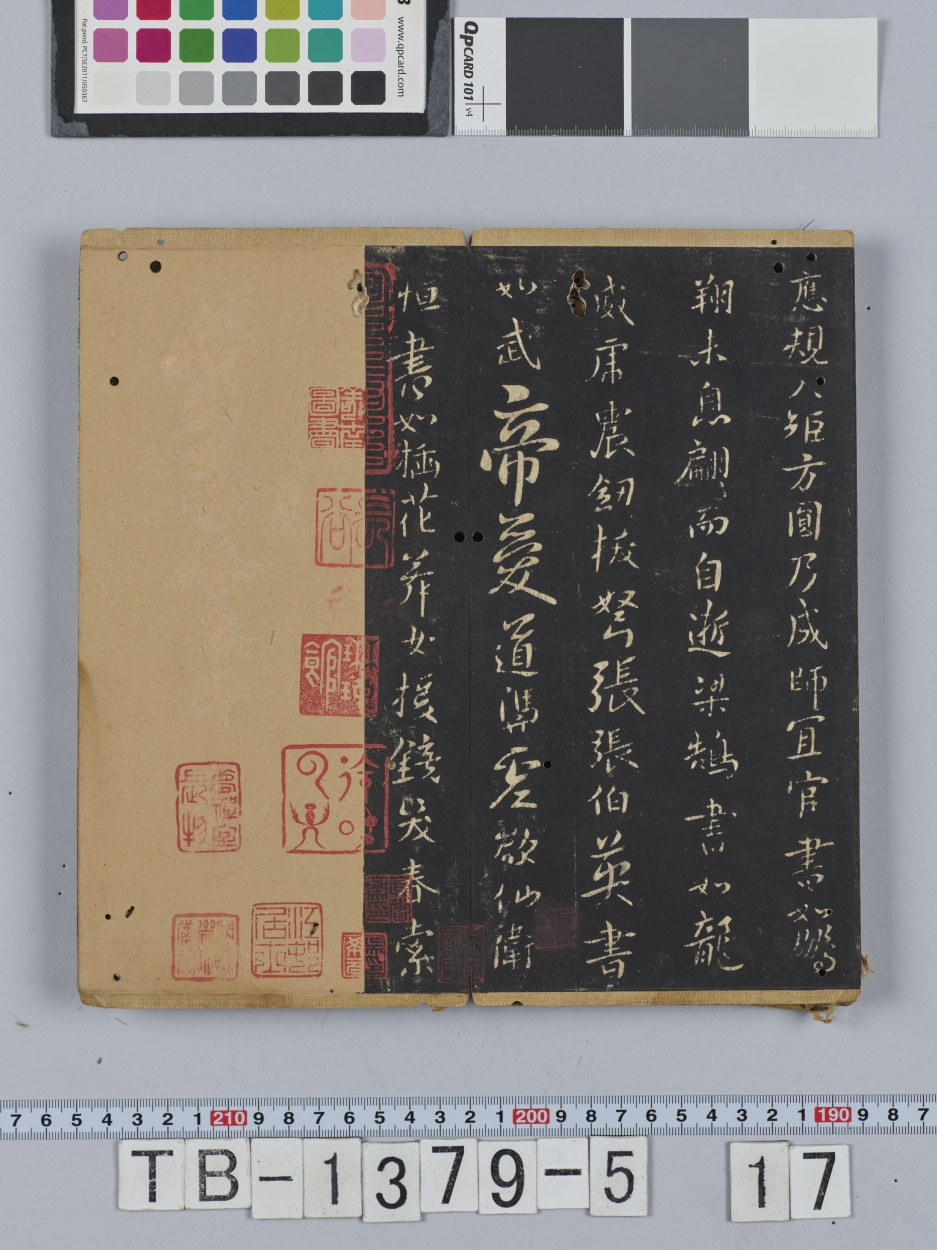 應規入矩方圓乃成師宜官書如鵬
翔未息翩而自逝梁鵠書如龍
威虎震劒拔弩張張伯英書
如武帝愛道馮虛欲仙衛
恒書如插花舞女援鏡笑春索
QPCARD 101 v4
www.qpcard.com
7 6 5 4 3 2 1 210 9 8 7 6 5 4 3 2 1 200 9 8 7 6 5 4 3 2 1 190 9 8 7
TB-1379-5 17